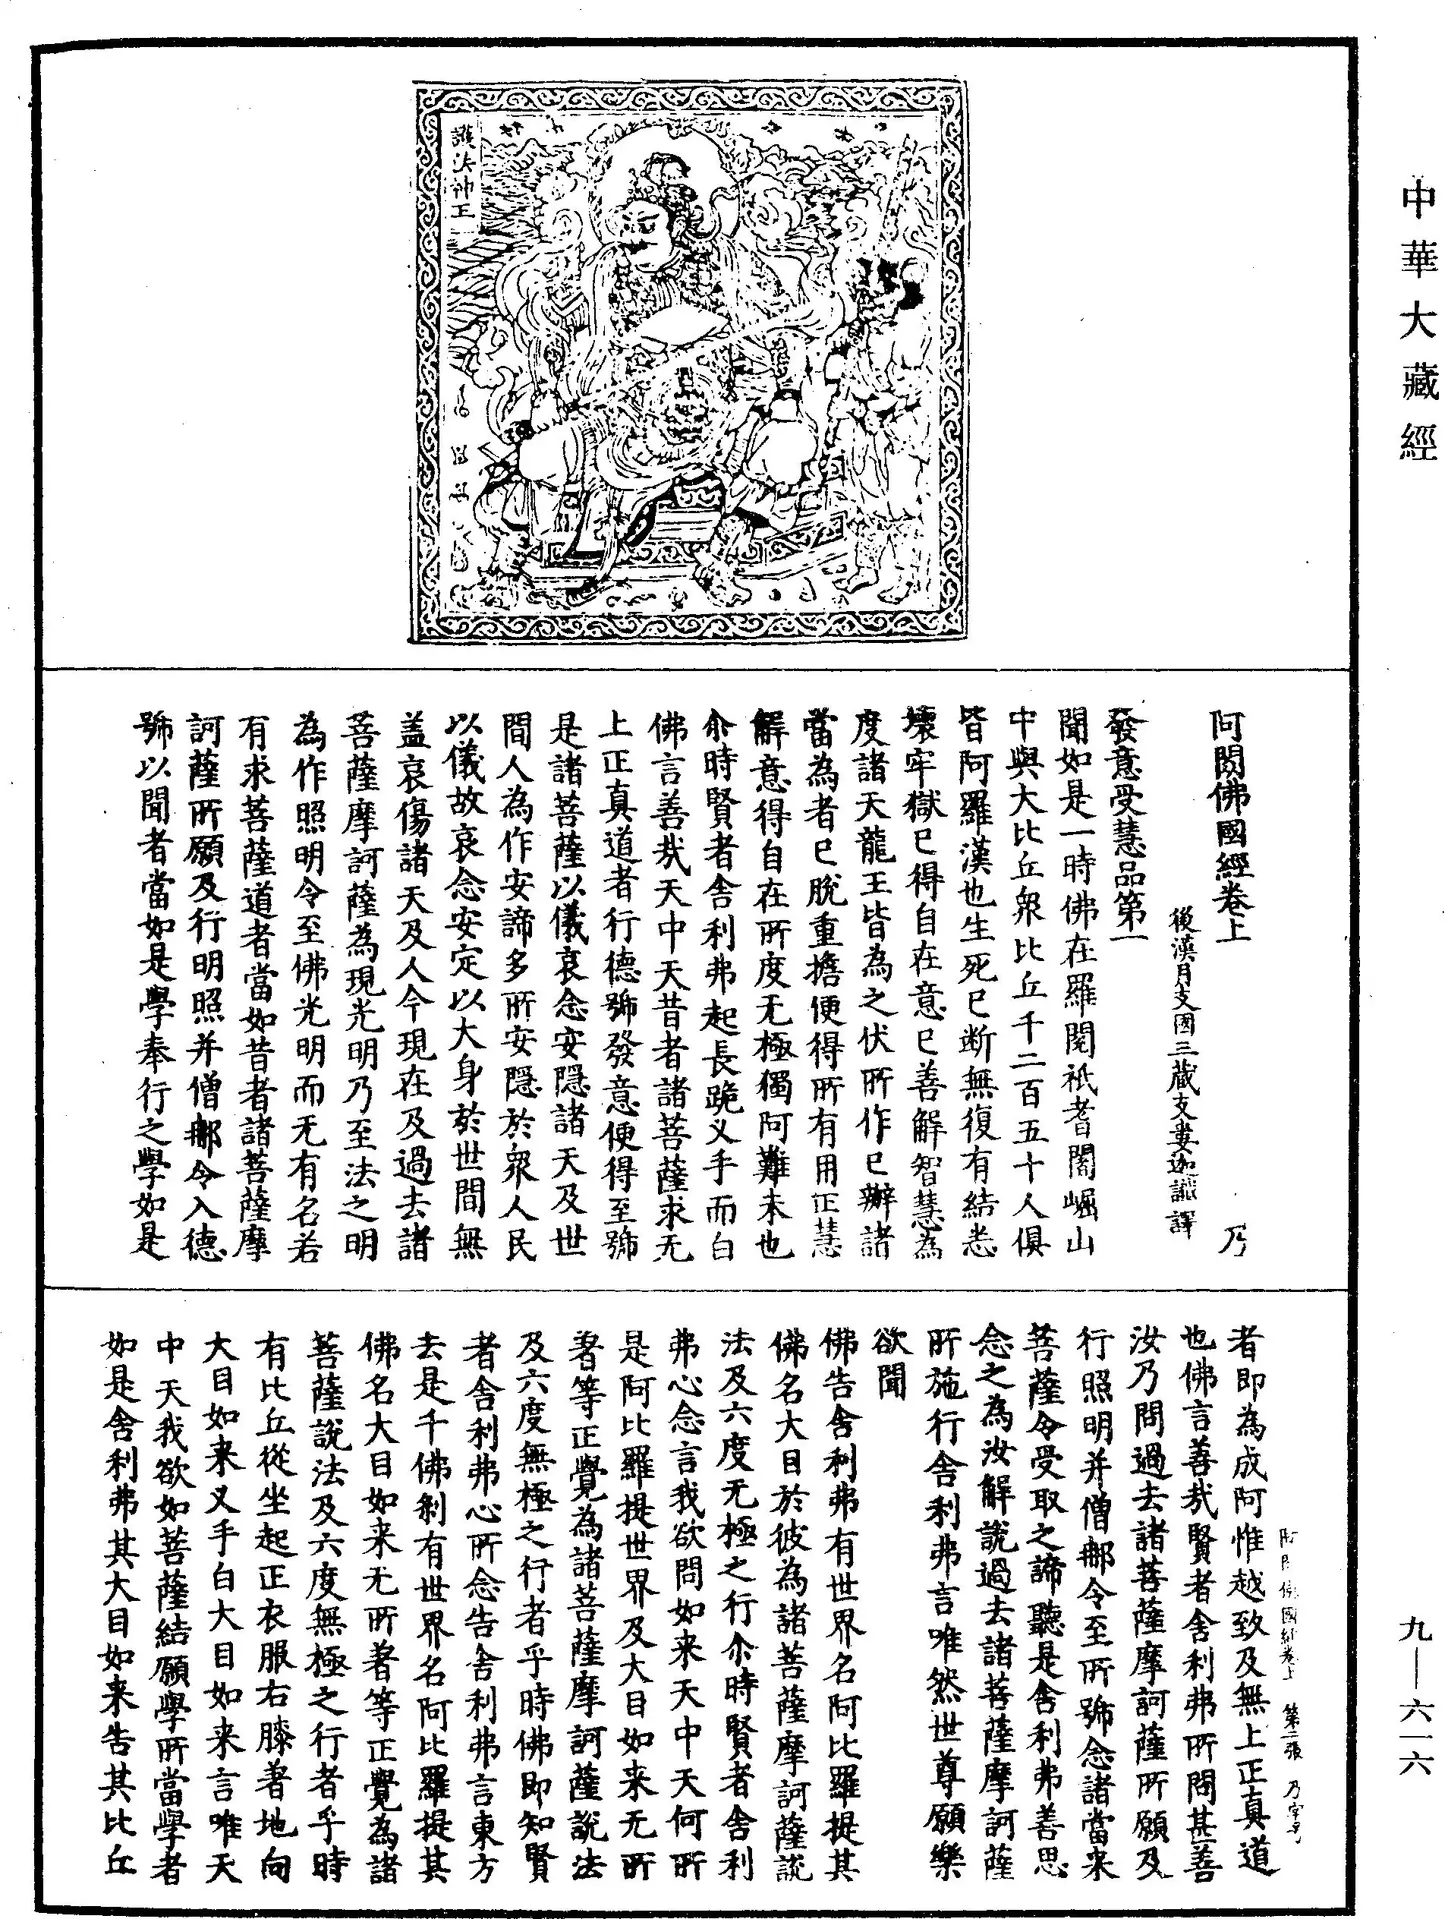 中華大藏經
護法神王
阿閦佛國經卷上　乃
後漢月支國三藏支婁迦讖譯
發意受慧品第一
聞如是一時佛在羅閱祇耆闍崛山
中與大比丘衆比丘千二百五十人俱
皆阿羅漢也生死已断無復有結悉
壞牢獄已得自在意已善解智慧為
度諸天龍王皆為之伏所作已辦諸
當為者已脫重擔便得所有用正慧
解意得自在所度无極獨阿難未也
尒時賢者舍利弗起長跪叉手而白
佛言善㢤天中天昔者諸菩薩求无
上正真道者行德號發意便得至號
是諸菩薩以儀哀念安隱諸天及世
間人為作安諦多所安隱於衆人民
以儀故哀念安定以大身於世間無
盖哀傷諸天及人今現在及過去諸
菩薩摩訶薩為現光明乃至法之明
為作照明令至佛光明而无有名若
有求菩薩道者當如昔者諸菩薩摩
訶薩所願及行明照并僧那令入德
號以聞者當如是學奉行之學如是
者即為成阿惟越致及無上正真道
也佛言善㢤賢者舍利弗所問甚善
汝乃問過去諸菩薩摩訶薩所願及
行照明并僧那令至所號念諸當来
菩薩令受取之諦聽是舍利弗善思
念之為汝解說過去諸菩薩摩訶薩
所施行舍利弗言唯然世尊願樂
欲聞
佛告舍利弗有世界名阿比羅提其
佛名大目於彼為諸菩薩摩訶薩說
法及六度无極之行尒時賢者舍利
弗心念言我欲問如来天中天何所
是阿比羅提世界及大目如来无所
著等正覺為諸菩薩摩訶薩說法
及六度無極之行者乎時佛即知賢
者舍利弗心所念告舍利弗言東方
去是千佛剎有世界名阿比羅提其
佛名大目如来无所著等正覺為諸
菩薩說法及六度無極之行者乎時
有比丘從坐起正衣服右膝著地向
大目如来叉手白大目如来言唯天
中天我欲如菩薩結願學所當學者
如是舍利弗其大目如来告其比丘
佛國經卷上　第二張　乃字号
九—六一六